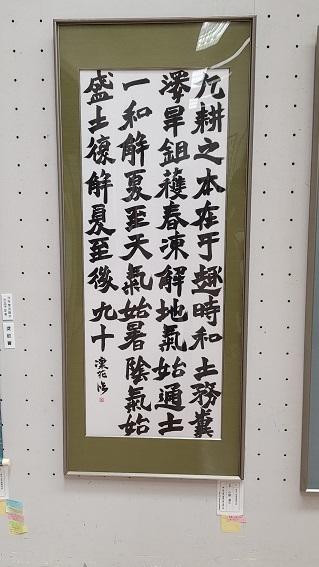 凡耕之本在于趣時和土務糞
澤旱鉏穫春凍解地氣始通土
一和解夏至天氣始暑陰氣始
盛土復解夏至後九十